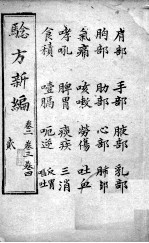 肩部 手部 腋部 乳部
胸部 心部 肺部
氣痛 咳嗽 勞傷 吐血
哮吼 脾胃 痰疾 三消
食積 噎膈 呃逆
騐方新編 卷二 卷三 卷四
貳